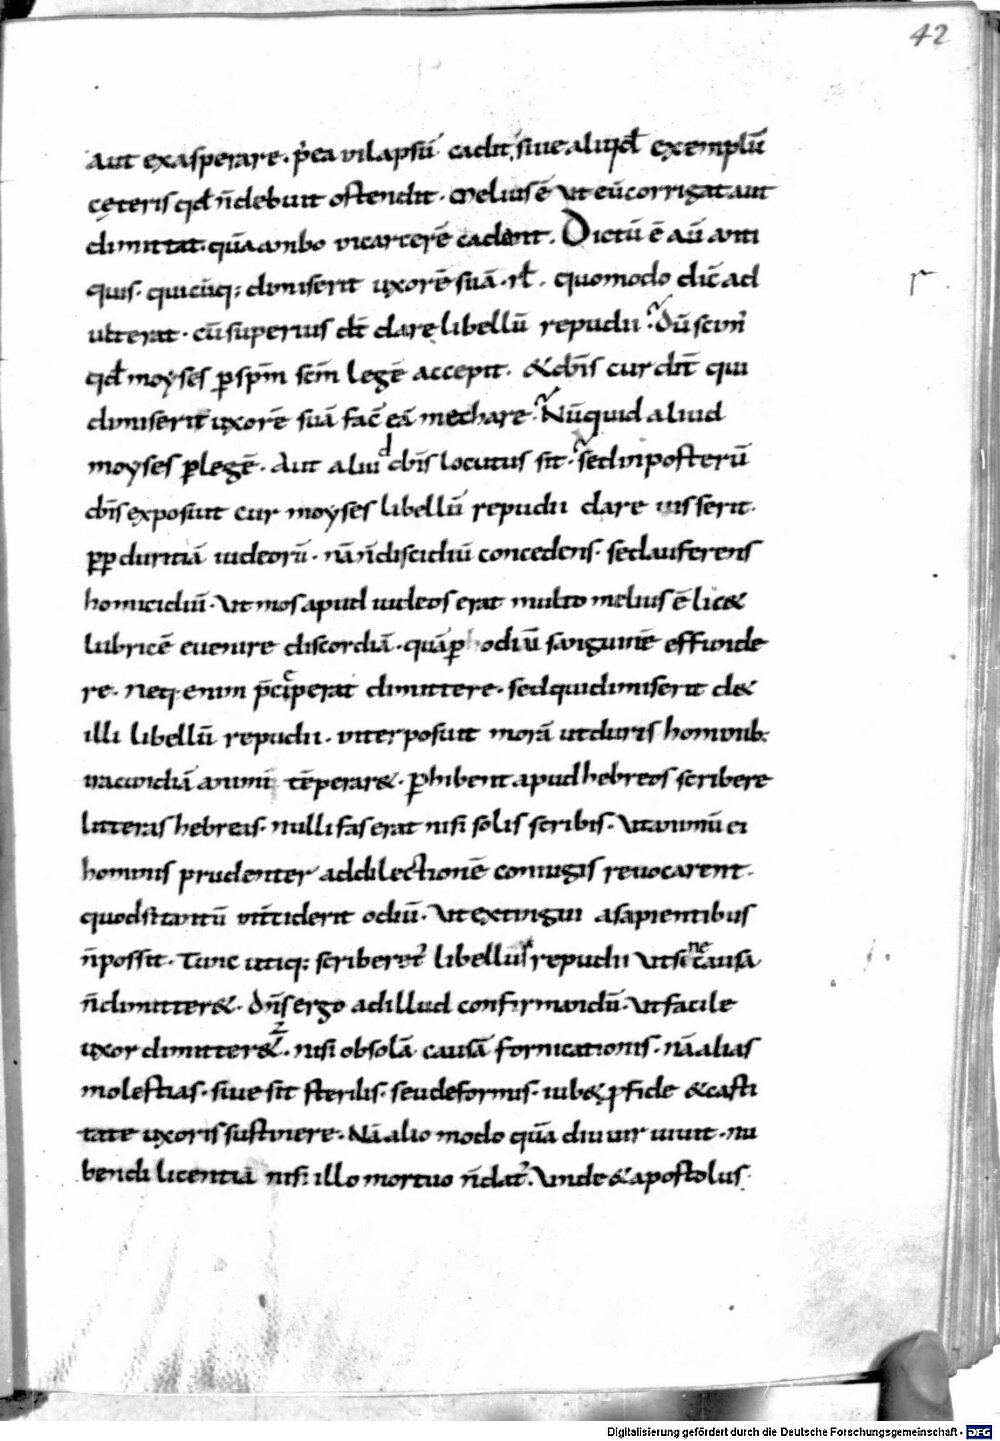 42
aut exasperare. p̄ea vil apsū cadit, siue aliqđ exemplū
cęteris qđ n̄ debuit ostendit. Melius ē ut eū corrigat aut
dimittat. quā ambo in carcerē cadant. Dictū ē aū anti
quis. quicūq; dimiserit uxorē suā. rł. quomodo dic̄ ad
ulterat. cū superius dt̄ darę libellū repudii? dū scim̄
qđ moyses p spm̄ scm̄ legē accepit. & dn̄s cur dit̄ qui
dimiserit uxorē suā fac̄ eā mechare? Nūquid aliud
moyses p legē. aut aliud dn̄s locutus sit? sed in posterū
dn̄s exposuit cur moyses libellū repudii dare iusserit.
pp duritiā iudeorū. nā n̄ discidiū concedens. sed auferens
homicidiū. Ut mos apud iudeos erat multo melius ē lic&
lubricē euenire discordiā. quā p odiū sanguinē effunde
re. Neq; enim p̄ciperat dimittere. sed qui dimiserit d&
illi libellū repudii. interposuit morā ut duris hominib;
iracundiā animi tēperar&. phibent apud hebreos scribere
litteras hebreas. nulli fas erat nisi solis scribis. Ut animū ei
hominis prudenter ad dilectionē coniugis reuocarent.
quod si tantū int̄ciderit odiū. Ut extingui a sapientibus
n̄ possit. Tunc utiq; scriberet̄ libellus repudii ut sine causa
n̄ dimitter&. Dn̄s ergo ad illud confirmandū. Ut facile
uxor dimitter&. nisi ob solā causā fornicationis. nā alias
molestias. siue sit sterilis. seu deformis. iub& p fide & casti
tate uxoris sustinere. Nā alio modo quā diu uir uiuit. nu
bendi licentiā nisi illo mortuo n̄ dat̄. Unde & apostolus.
Digitalisierung gefördert durch die Deutsche Forschungsgemeinschaft - DFG